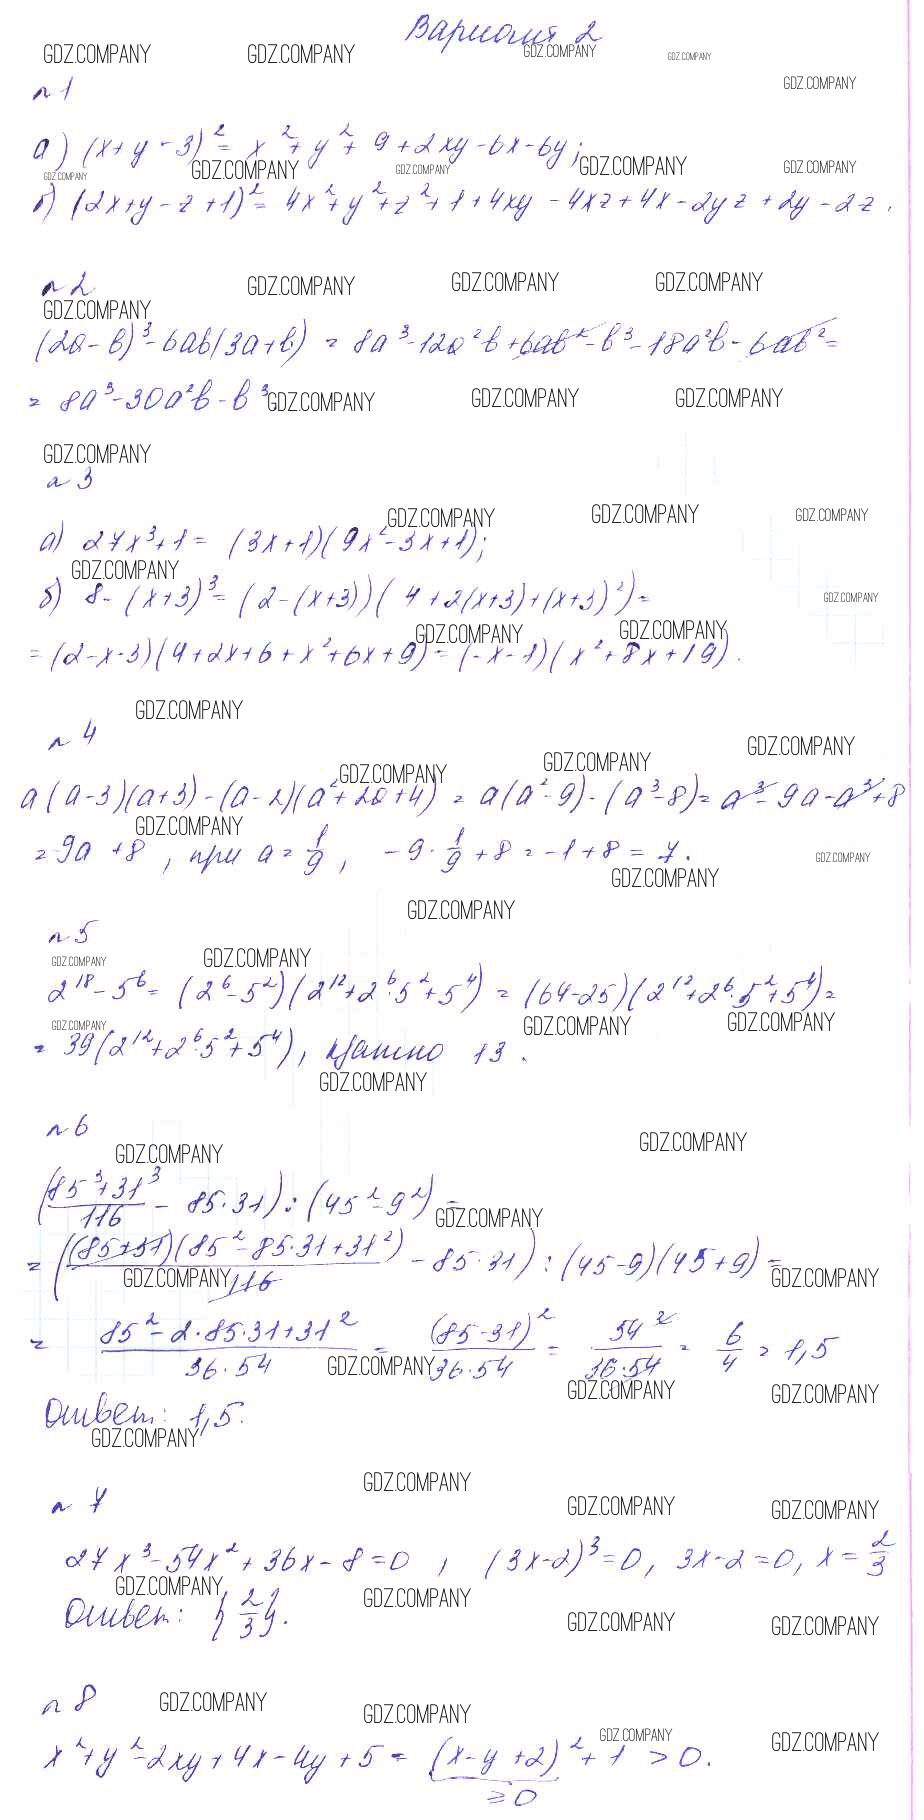 Вариант 2
n 1
а) (x+y-3)² = x²+y²+9+2xy-6x-6y;
б) (2x+y-z+1)² = 4x²+y²+z²+1+4xy-4xz+4x-2yz+2y-2z.
n 2
(2a-b)³-6ab(3a+b) = 8a³-12a²b+6ab²-b³-18a²b-6ab² =
= 8a³-30a²b-b³
n 3
а) 27x³+1 = (3x+1)(9x²-3x+1);
б) 8-(x+3)³ = (2-(x+3))(4+2(x+3)+(x+3)²) =
= (2-x-3)(4+2x+6+x²+6x+9) = (-x-1)(x²+8x+19).
n 4
a(a-3)(a+3)-(a-2)(a²+2a+4) = a(a²-9)-(a³-8) = a³-9a-a³+8
= -9a+8, при a = 1/9, -9·1/9+8 = -1+8 = 7.
n 5
2¹⁸-5⁶ = (2⁶-5²)(2¹²+2⁶·5²+5⁴) = (64-25)(2¹²+2⁶·5²+5⁴) =
= 39(2¹²+2⁶·5²+5⁴), кратно 13.
n 6
((85³+31³)/116 - 85·31) : (45²-9²) =
= (((85+31)(85²-85·31+31²))/116 - 85·31) : (45-9)(45+9) =
= (85²-2·85·31+31²)/(36·54) = (85-31)²/(36·54) = 54²/(36·54) = 6/4 = 1,5
Ответ: 1,5.
n 7
27x³-54x²+36x-8=0, (3x-2)³=0, 3x-2=0, x=2/3
Ответ: {2/3}.
n 8
x²+y²-2xy+4x-4y+5 = (x-y+2)²+1 > 0.
≥0
GDZ.COMPANY